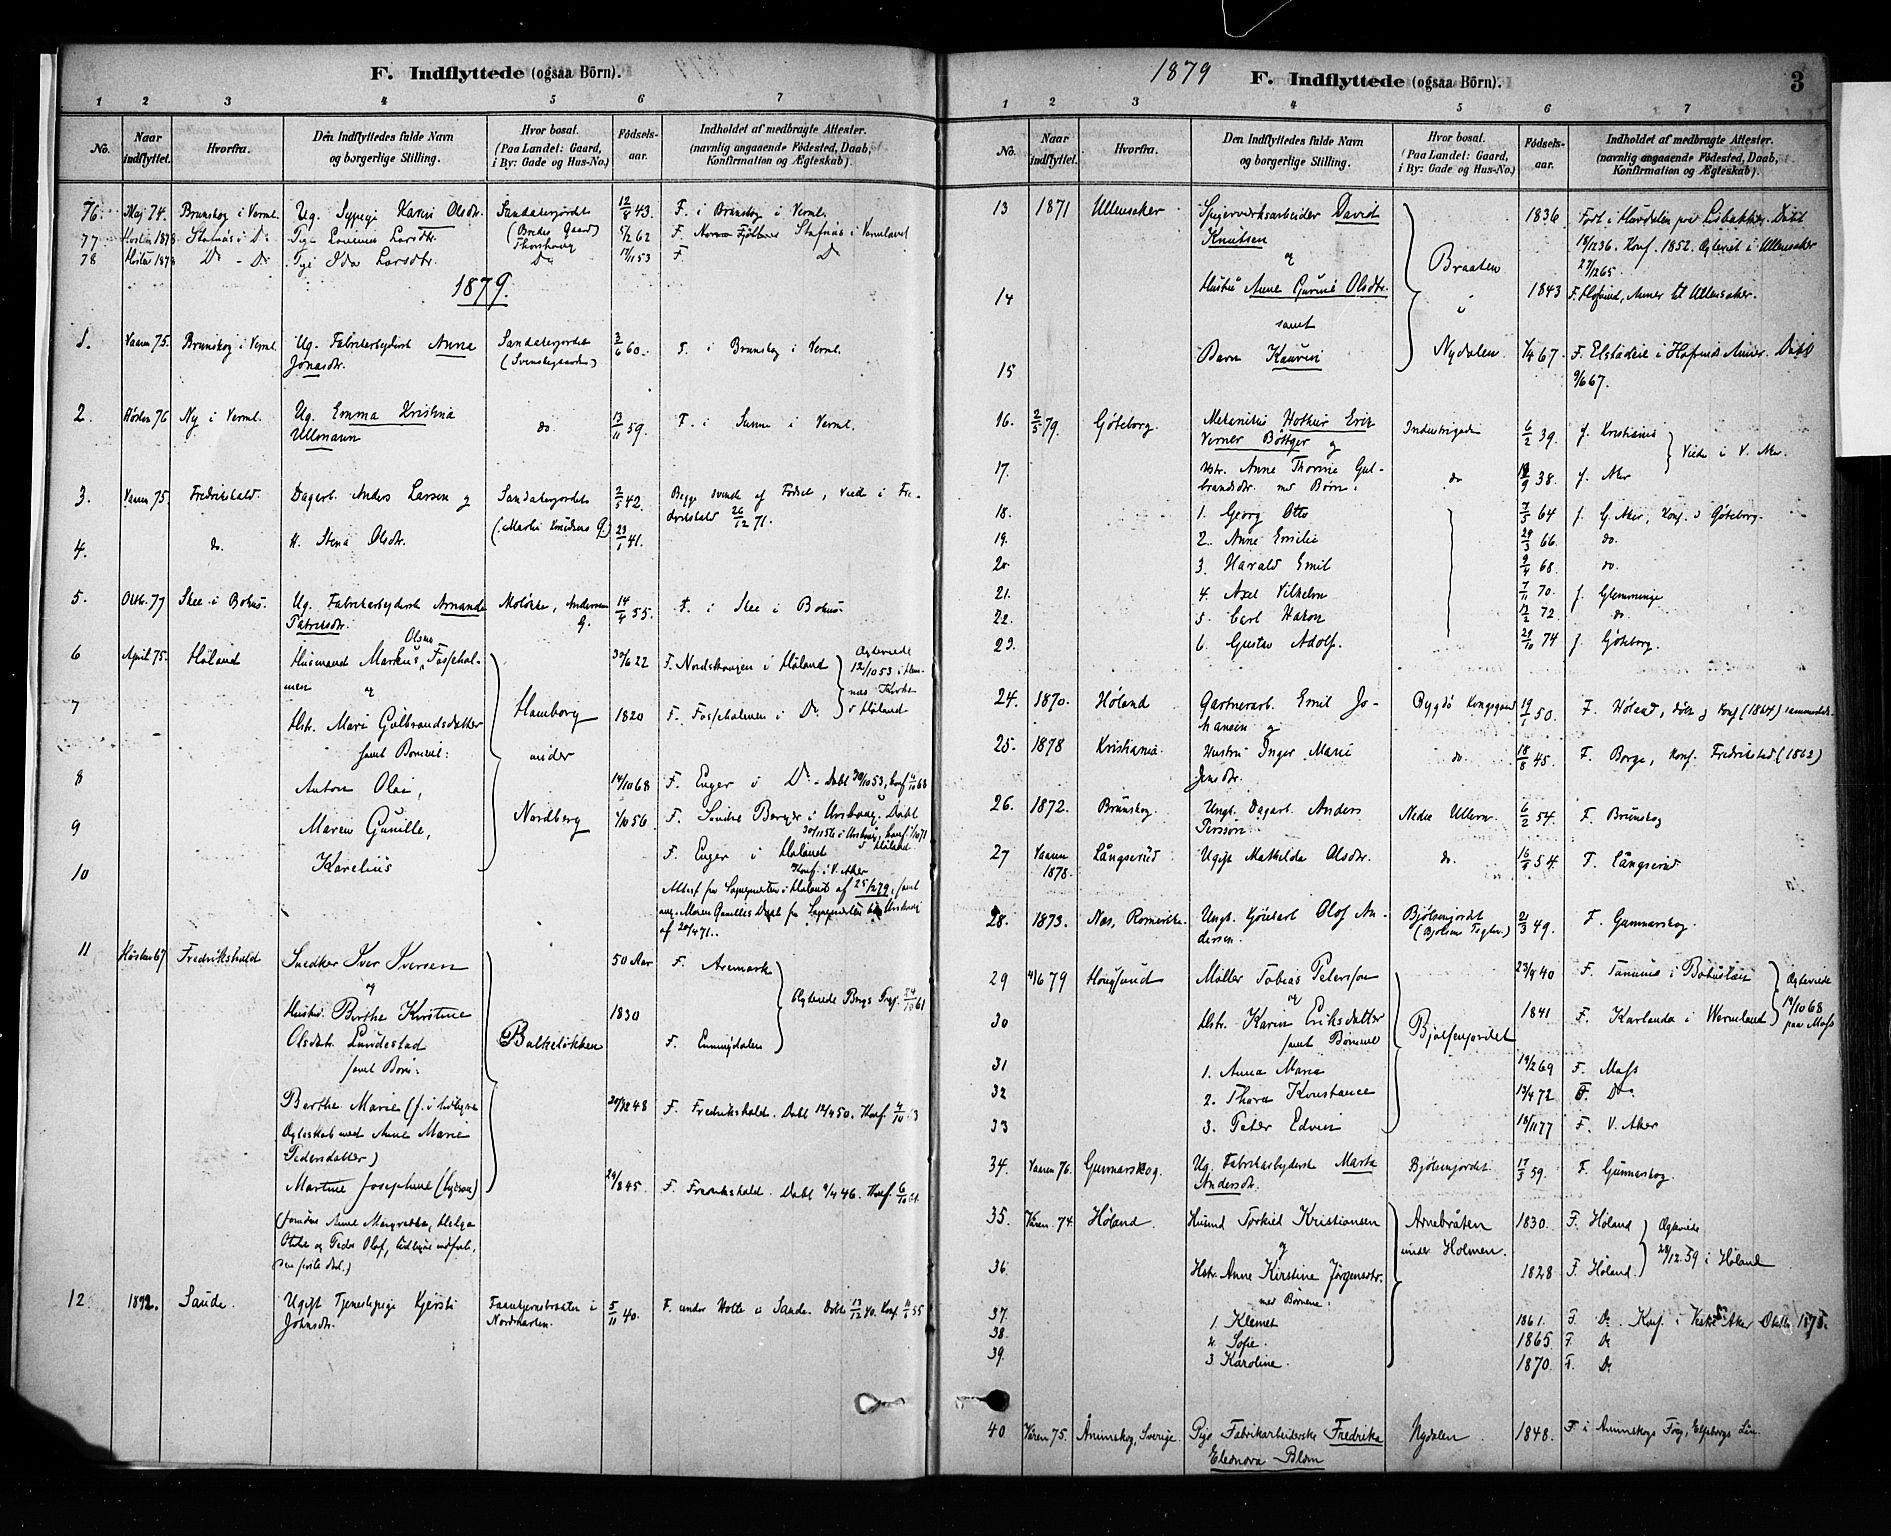 F. Indflyttede (ogsaa Börn).
1 2 3 4 5 6 7
No.
Naar indflyttet.
Hvorfra.
Den Indflyttedes fulde Navn og borgerlige Stilling.
Hvor bosat. (Paa Landet: Gaard, i By: Gade og Hus-No.)
Födsels-aar.
Indholdet af medbragte Attester. (navnlig angaaende Födested, Daab, Konfirmation og Ægteskab).
76. Maj 74. Brunskog i Verml. Ug. Sypige Karin Olsdtr. Sandakerjordet 12/8 43. F. i Brunskog i Verml.
(Bredes Gaard)
77 Høsten 1878 Stafnäs i Do Pige Lovinna Larsdtr. Thorshaug 5/2 62 F. Stafnäs i Vermland
78 Høsten 1878 Do - Do Pige Ida Larsdtr. Do 17/11 53 F Do
1879.
1. Vaaren 75. Brunskog i Verml. Ug. Fabrikarbeiderske Anna Sandakerjordet 3/6 60. F. i Brunskog i Verml.
Jonasdtr. (Svenskegaarden)
2. Høsten 76 Ny i Verml. Ug. Emma Kristina do 13/11 59. F. i Sunne i Verml.
Ullmann
3. Vaaren 75. Fredrikshald. Dagarb. Anders Larsen og Sandakerjordets 2/5 42. Begge svenske af Fødsel, viede i Fre-
(Martin Knudsens G.) drikshald 26/12 71.
4. do. H. Stena Olsdtr. 23/1 41.
5. Oktb. 77 Skee i Bohus. Ug. Fabrikarbeiderske Amanda Moløkke, Andersens 14/4 55. F. i Skee i Bohus.
Patriksdtr. G.
6 April 75. Høland Husmand Markus Olsen Fossehol- 30/6 22 F. Nordskaugen i Høland Ægteviede
men 12/10 53 i Hem-
og nes Kirke
7 Hstr. Mari Gulbrandsdatter Hamborg 1820 F. Fosseholmen i Do i Høland
samt Børnene: under
8 Anton Olai, 14/10 68 F. Enger i Do - Døbt
9 Maren Gunille, Nordberg 1/10 56 F. Søndre Berger i Urskoug. Døbt
30/11 56 i Urskoug, Konf. 1/10 71
i Høland
10 Karelius F. Enger i Høland
Konf. i V. Aker
Attest fra Sognepresten i Høland af 25/1 79, samt
ang. Maren Gunilles Daab fra Sognepresten i Urskoug
af 20/4 71.
11 Høsten 67 Fredrikshald Snedker Iver Iversen 50 Aar F. Aremark
og Ægteviede Bergs Prgj. 24/10 61
Hustru Berthe Kirstine 1830
Olsdatr. Lundestad Balkeløkken F. Enningdalen
samt Børn:
Berthe Marie (f. i tidligere 20/12 48 F. Fredrikshald. Døbt 12/4 50. Konf. 4/10 63
Ægteskab med Anne Marie
Pedersdatter)
Martine Josephine (ligesaa) 29/8 45. F. Fredrikshald. Døbt 9/4 46. Konf. 6/10
(samt Anne Margrethe, Helga
Otilde og Peder Olaf, tidligere indført,
12. 1872. Sande. Ugift Tjenestepige Kjersti Faanhjernsbraaten i 5/11 40. F. under Holte i Sande. Døbt 13/12 40. Konf. 55
Johnsdtr. Nordmarken.
1879 F. Indflyttede (ogsaa Börn). 3
1 2 3 4 5 6 7
No.
Naar indflyttet.
Hvorfra.
Den Indflyttedes fulde Navn og borgerlige Stilling.
Hvor bosat. (Paa Landet: Gaard, i By: Gade og Hus-No.)
Födsels-aar.
Indholdet af medbragte Attester. (navnlig angaaende Födested, Daab, Konfirmation og Ægteskab).
13 1871 Ullensaker Spigerværksarbeider David 1836 Født i Hovdalen Døbt
Knutsen 18/12 36. Konf. 1852. Ægteviet i Ullensaker
og Braaten 27/12 65.
14 Hustru Anne Gurine Olsdtr. " 1843 F. Hofvind, Annex til Ullensaker.
samt
15 Barn Kaurin Nydalen 1/4 67 F. Elstadeie i Hofvind Annex. Døbt
9/6 67.
16. 2/5 79. Göteborg. Mekanikus Hother Erik Industrigaden 6/2 39. f. Kristiania
Verner Böttger og Viede i V. Aker.
17. Hstr. Anne Thorine Gul- do 38. f. Aker
brandsdtr. med Børn:
18. 1. Georg Otto 7/5 64 f. G. Aker, Konf. i Göteborg.
19. 2. Anne Emilie 29/3 66 do.
20. 3. Harald Emil 9/4 68. do.
21. 4. Axel Vilhelm 7/11 70. f. Glemminge
22. 5. Carl Hakon 12/2 72. do.
23. 6. Gustav Adolf. 29/10 74 f. Göteborg.
24. 1870. Høland Gartnerarb. Emil Jo- Bygdø Kongsgaard 19/1 50. F. Høland, døbt og Konf. (1864) sammesteds.
hansen og
25. 1878 Kristiania. Hustru Inger Marie do. 18/8 45. F. Borge, Konf. Fredrikstad (1862)
Jensdtr.
26. 1872. Brunskog. Ungk. Dagarb. Anders Nedre Ullern. 6/2 54. F. Brunskog
Persson.
27 Vaaren Långserud Ugift Mathilda Olsdtr. do. 54. F. Långserud
1878.
28. 1873. Næs, Romerike. Ungk. Gaardarb. Olof An- Bjølsenjordet 2/3 49. F. Gunnarskog.
dersen. (Bjølsens Teglv.)
29 4/6 79 Hougsund Møller Tobias Petersson 23/4 40 F. Tanum i Bohuslän Ægteviede
og 19/10 68
30 Hstr. Karin Eriksdatter Bjølsenjordet 1841 F. Karlanda i Wermland paa Moss
samt Børnene
31 1. Anna Maria 19/2 69 F. Moss
32 2. Thora Konstance 13/4 72 F. Do
33 3. Peter Edvin 18/11 77 F. V. Aker
34. Vaaren 76. Gunnarskog. Ug. Fabrikarbeiderske Marta Bjølsenjordet 17/3 59. F. Gunnarskog.
Andersdtr.
35. Våren 74. Høland. Husmd Torkild Kristiansen Arnebråten 1830. F. Høland Ægteviede
og under Holmen. 28/12 59 i Høland
36. Hstr. Anne Kirstine Jörgensdtr. 1828 F. Høland.
med Børnene:
37. 1. Klemet 1861. F. Do. Konf. i Vestre Aker Oktbr. 1875.
38. 2. Sofie. 1865 F. Do
39. 3. Karoline. 1870. F. Do
40 Våren 75. Ånimskog, Sverige. Pige Fabrikarbeiderske Fredrika Nydalen 1848. F. i Animskogs Frsg., Elfsborgs Län.
Eleonora Blom